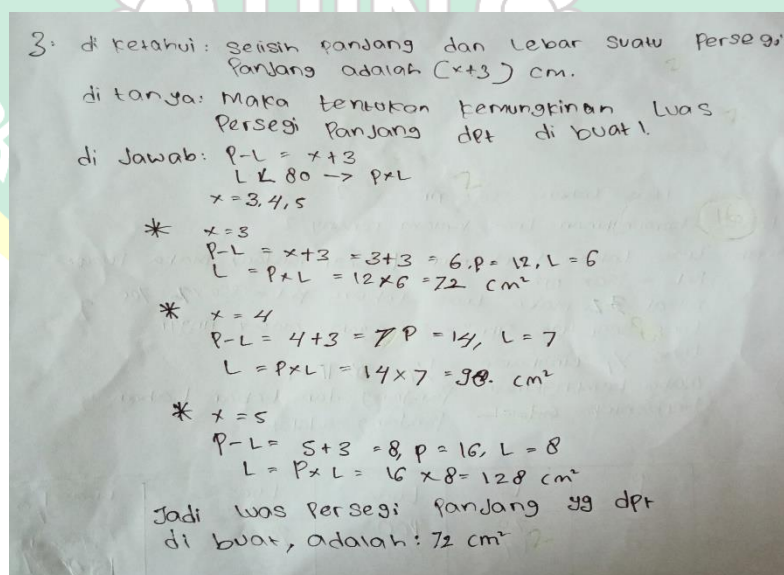 3. di ketahui : Selisih panjang dan Lebar suatu Persegi
Panjang adalah (x+3) cm.
di tanya: Maka tentukan kemungkinan Luas
Persegi Panjang dpt di buat !
di Jawab: P-L = x+3
L < 80 -> PxL
x = 3, 4, 5
* x = 3
P-L = x+3 = 3+3 = 6. P = 12, L = 6
L = PxL = 12x6 = 72 cm²
* x = 4
P-L = 4+3 = 7 P = 14, L = 7
L = PxL = 14x7 = 98. cm²
* x = 5
P-L = 5+3 = 8, P = 16, L = 8
L = PxL = 16 x 8 = 128 cm²
Jadi luas Persegi Panjang yg dpt
di buat, adalah : 72 cm²